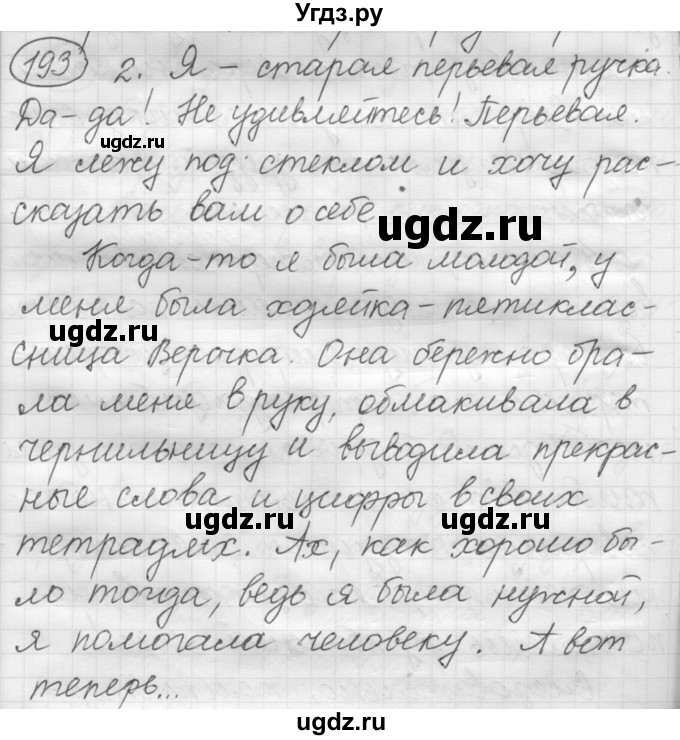 Угдз.ру
193 2. Я - старая перьевая ручка.
Да-да! Не удивляйтесь! Перьевая.
ugdz.ru
Я лежу под стеклом и хочу рас-
сказать вам о себе.
ugdz.ru
Когда-то я была молодой, у
меня была хозяйка - пятиклас-
ugdz.ru
сница Верочка. Она бережно бра-
ла меня в руку, обмакивала в
чернильницу и выводила прекрас-
ные слова и цифры в своих
ugdz.ru ugdz.ru
тетрадях. Ах, как хорошо бы-
ло тогда, ведь я была нужной,
я помогала человеку. А вот
теперь...
ugdz.ru